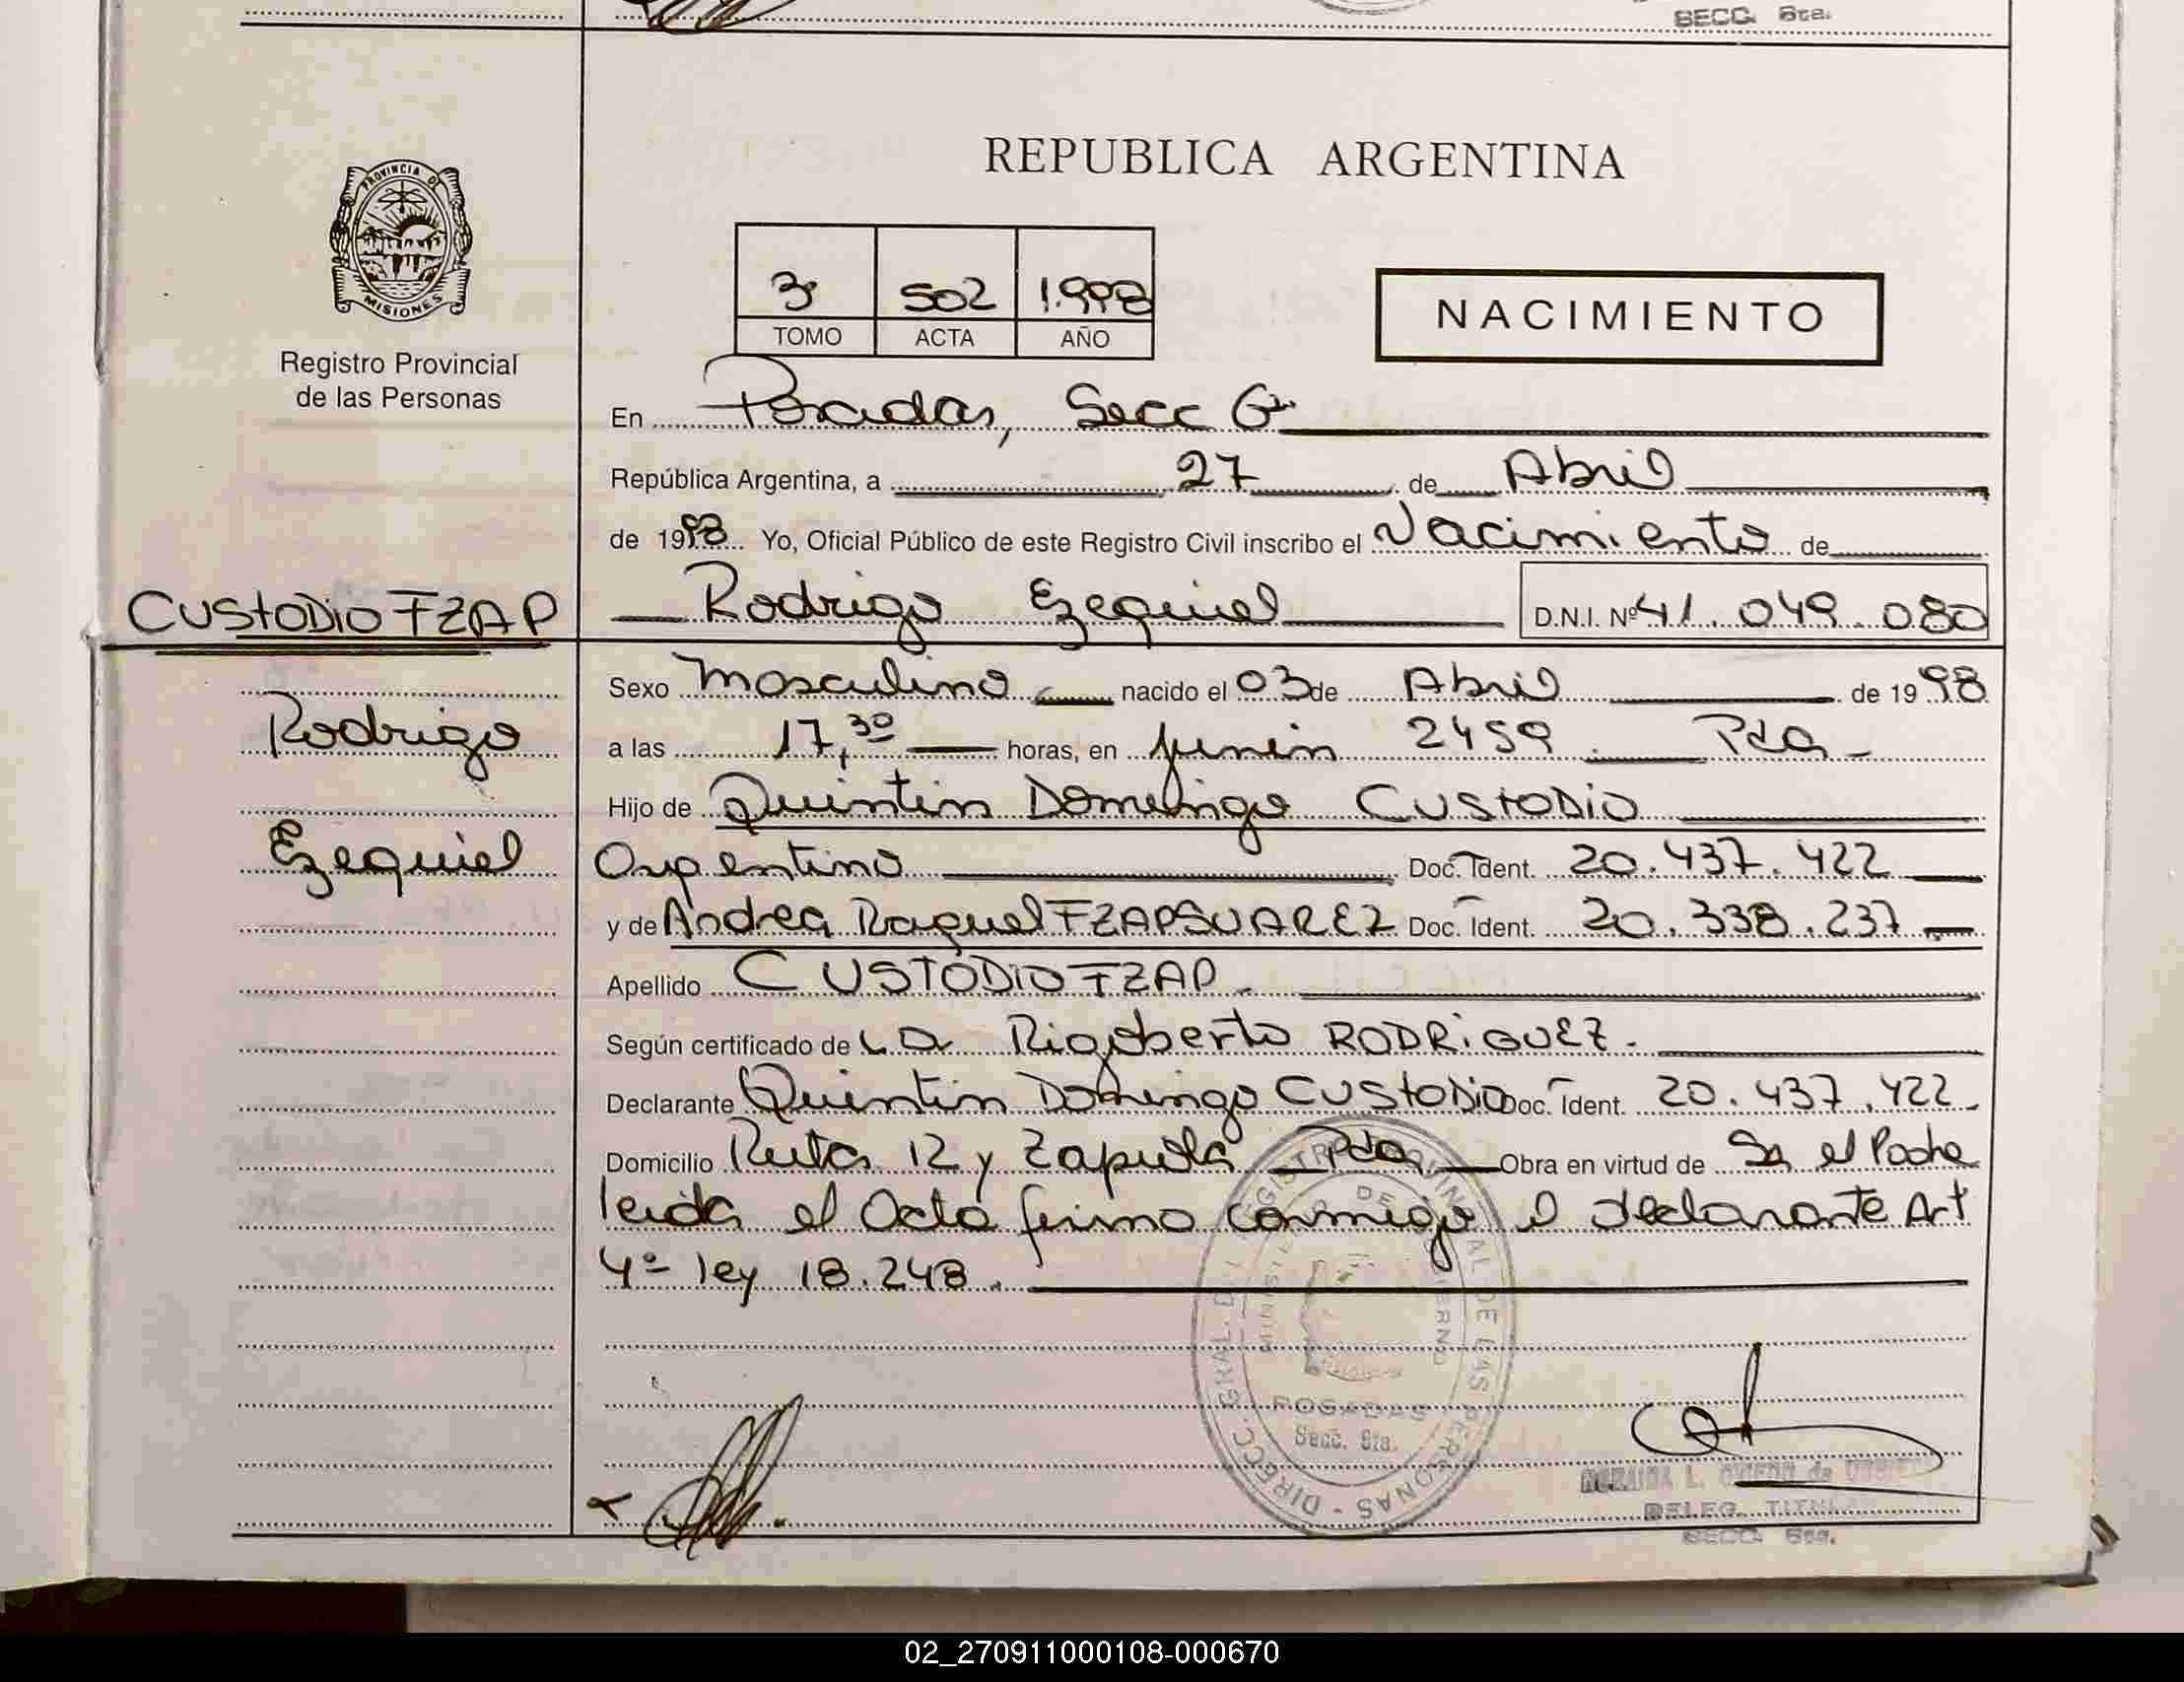 SECC. 6ta.
PROVINCIA DE
MISIONES
Registro Provincial
de las Personas
REPUBLICA ARGENTINA
3º 502 1.998
TOMO ACTA AÑO
NACIMIENTO
En Posadas, Secc 6ta
República Argentina, a 27 de Abril
de 1998 Yo, Oficial Público de este Registro Civil inscribo el Nacimiento de
CUSTODIO FZAP
Rodrigo Ezequiel D.N.I. Nº 41.049.080
Sexo Masculino nacido el 03 de Abril de 1998
Rodrigo
a las 17,30 horas, en Junín 2459 Pdas
Hijo de Quintin Domingo CUSTODIO
Ezequiel
Argentino Doc. Ident. 20.437.422
y de Andrea Raquel FZAP SUAREZ Doc. Ident. 20.338.237
Apellido CUSTODIO FZAP
Según certificado de Rigoberto RODRiGUEZ
Declarante Quintin Domingo CUSTODIO Doc. Ident. 20.437.422
Domicilio Ruta 12 y Zapiola Pdas Obra en virtud de Ser el Padre
leida el Acta firma conmigo el declarante Art
4º ley 18.248.
DIRECC. GRAL. DEL REGISTRO PROVINCIAL DE LAS PERSONAS
MINISTERIO DE GOBIERNO
POSADAS
Secc. 6ta.
L. OVIEDO de
DELEG. TITULAR
SECC. 6ta.
02_270911000108-000670